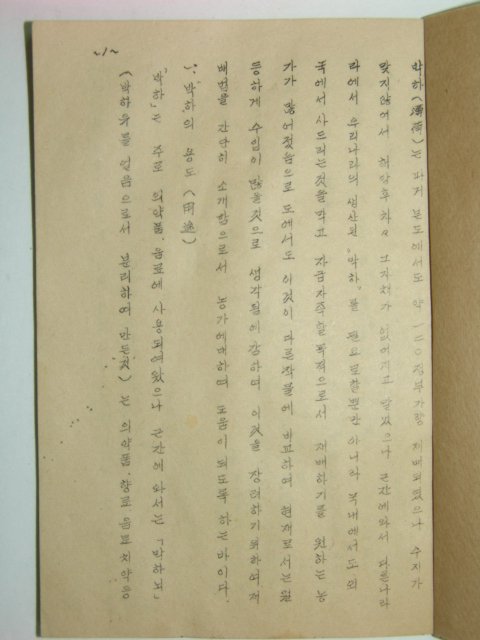 박하(薄荷)는 과거 본도에서도 약 一二〇정부가량 재배되였으나 수지가
맞지않어서 희망후 차々 그자체가 없어지고 말었으나 근간에와서 다른나라
라에서 우리나라의 생산된 "박하"를 필요로할뿐만 아니라 국내에서도 외
국에서 사드리는것을막고 자급자족을목적으로서 재배하기를 원하는 농
가가 많어젔음으로 도에서도 이것이 다른작물에 비교하여 현재로서는월
등하게 수입이많을것으로 생각됨에감하여 이것을 장려하기위하여 저
배법을 간단히 소개함으로서 농가에대하여 도움이 되도록 하는바이다.
一. "박하의 용도(用途)
"박하"는 주로 의약품.음료에 사용되여왔으나 근간에 와서는 「박하뇌」
(박하유를 얼음으로서 분리하여 만든것)는 의약품.향료 음료 치약등
~1~